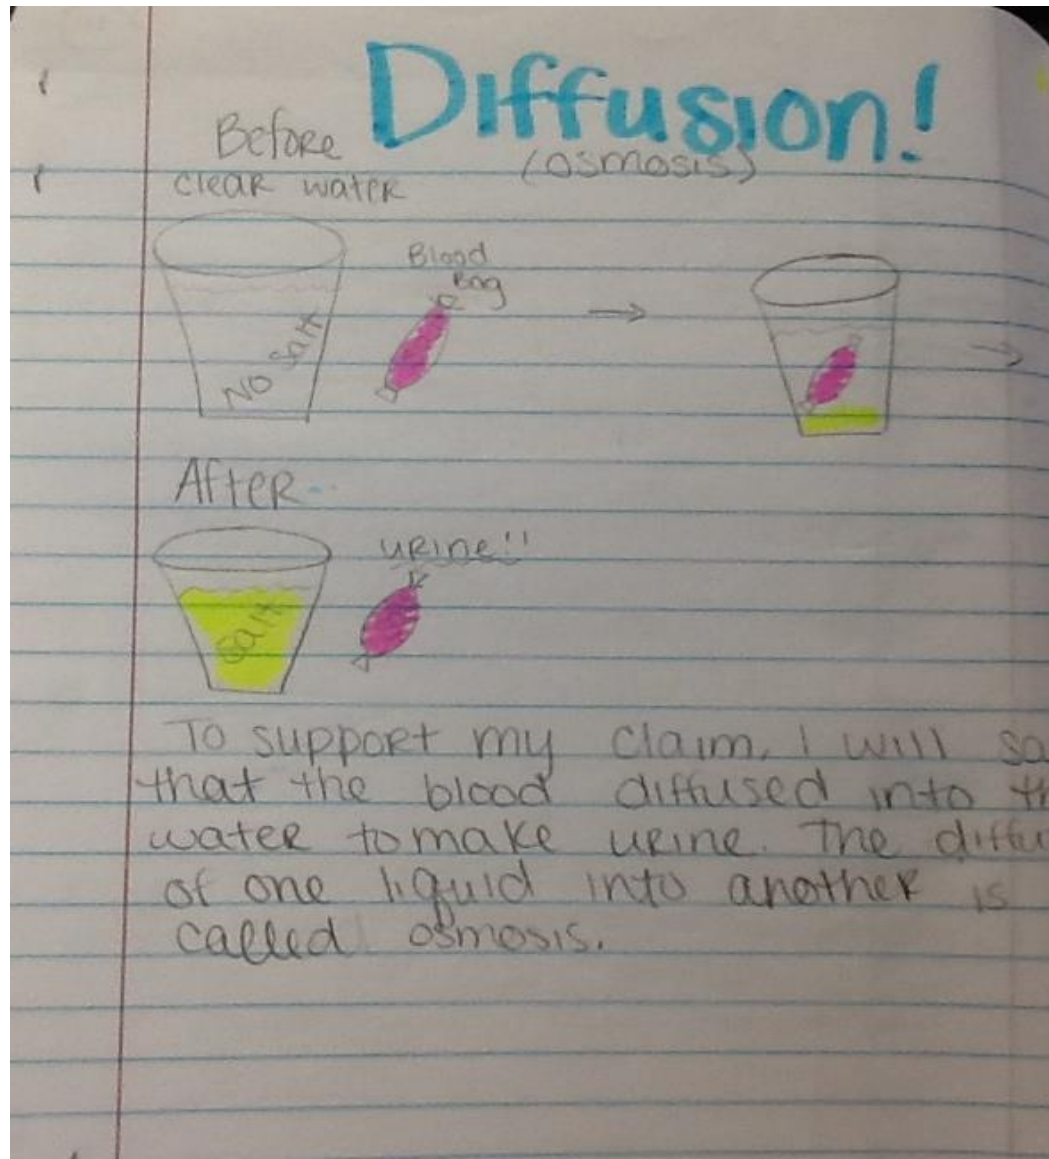 Diffusion!
Before
(osmosis)
clear water
Blood
Bag
NO Salt
After
urine!!
Salt
To support my claim, I will sa
that the blood diffused into th
water to make urine. The diffu
of one liquid into another is
called osmosis.